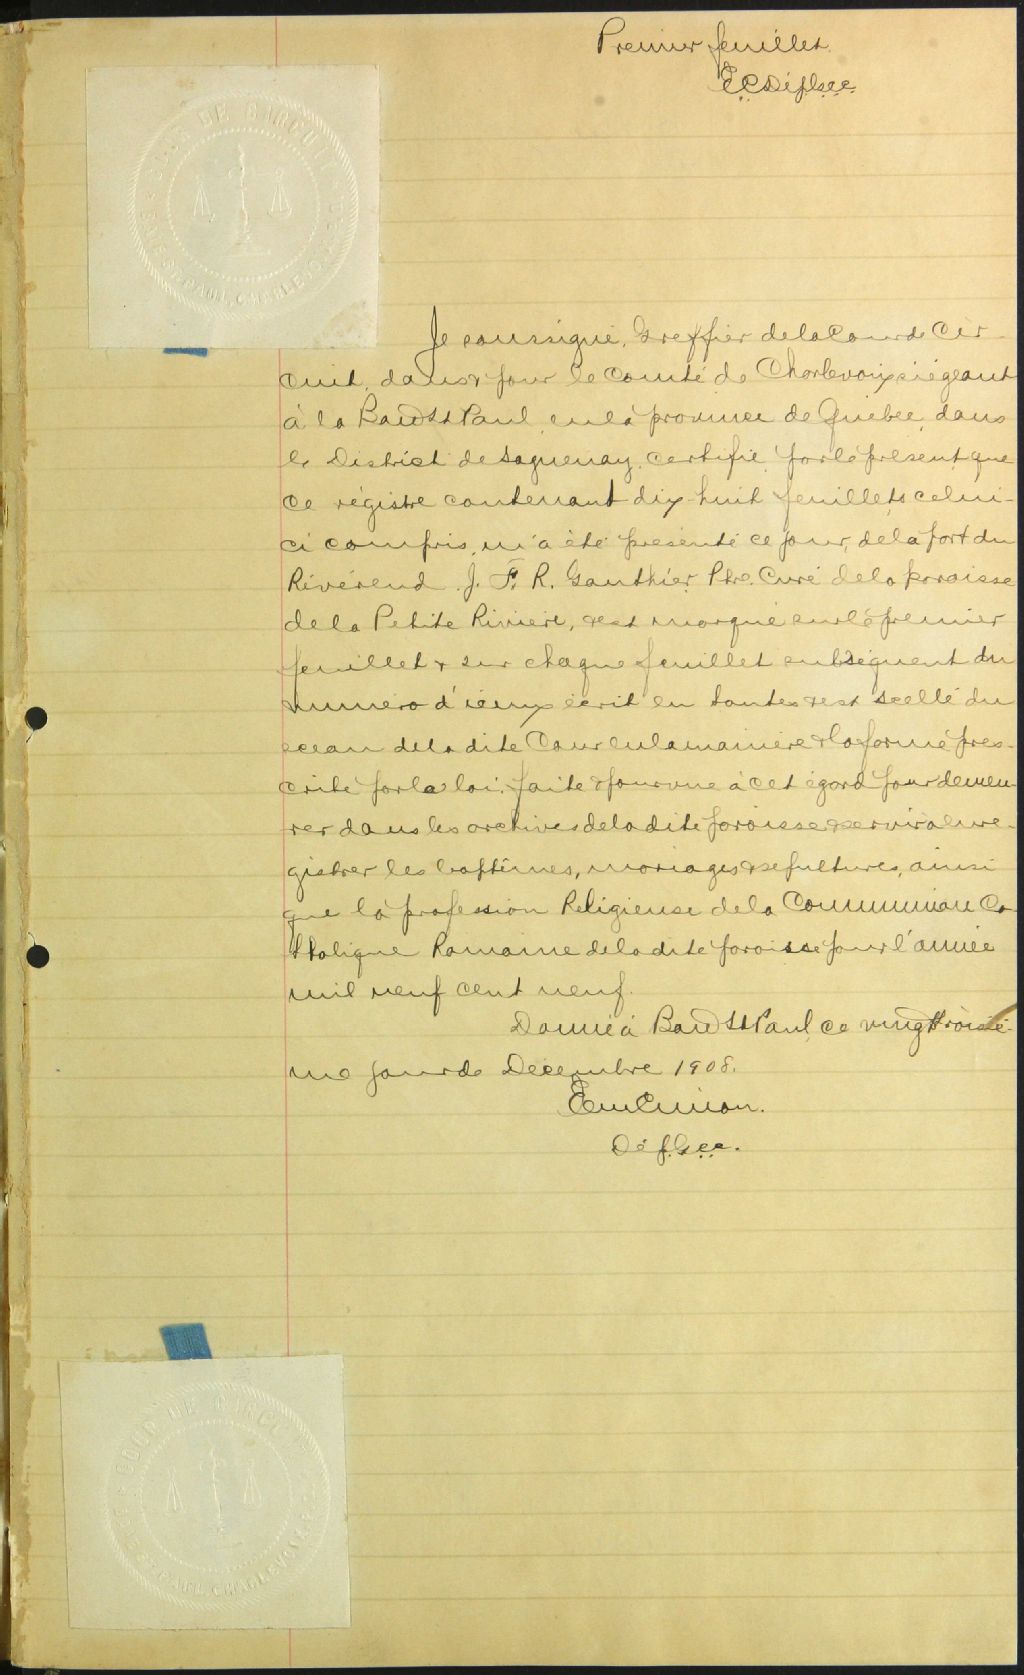 Premier feuillet.
E.C. Dép. G.c.c.
COUR DE CIRCUIT
BAIE ST. PAUL, CHARLEVOIX
Je soussigné, Greffier de la Cour de Cir-
cuit, dans & pour le Comté de Charlevoix siégeant
à la Baie St Paul, en la province de Québec, dans
le District de Saguenay, certifie par le présent que
ce régistre contenant dix-huit feuillets celui-
ci compris, m'a été présenté ce jour, de la part du
Révérend J. F. R. Gauthier Ptre. Curé de la paroisse
de la Petite Rivière, & est marqué sur le premier
feuillet & sur chaque feuillet subséquent du
numéro d'iceux écrit en toutes & est scellé du
sceau de la dite Cour en la manière & la forme pres-
crite par la loi, faite & pourvue à cet égard pour demeu-
rer dans les archives de la dite paroisse & servir à enre-
gistrer les baptêmes, mariages & sépultures, ainsi
que la profession Religieuse de la Communion Ca-
tholique Romaine de la dite paroisse pour l'année
mil neuf cent neuf.
Donné à Baie St Paul, ce vingt troisiè-
me jour de Décembre 1908.
Dép. G.c.c.
COUR DE CIRCUIT
BAIE ST. PAUL, CHARLEVOIX